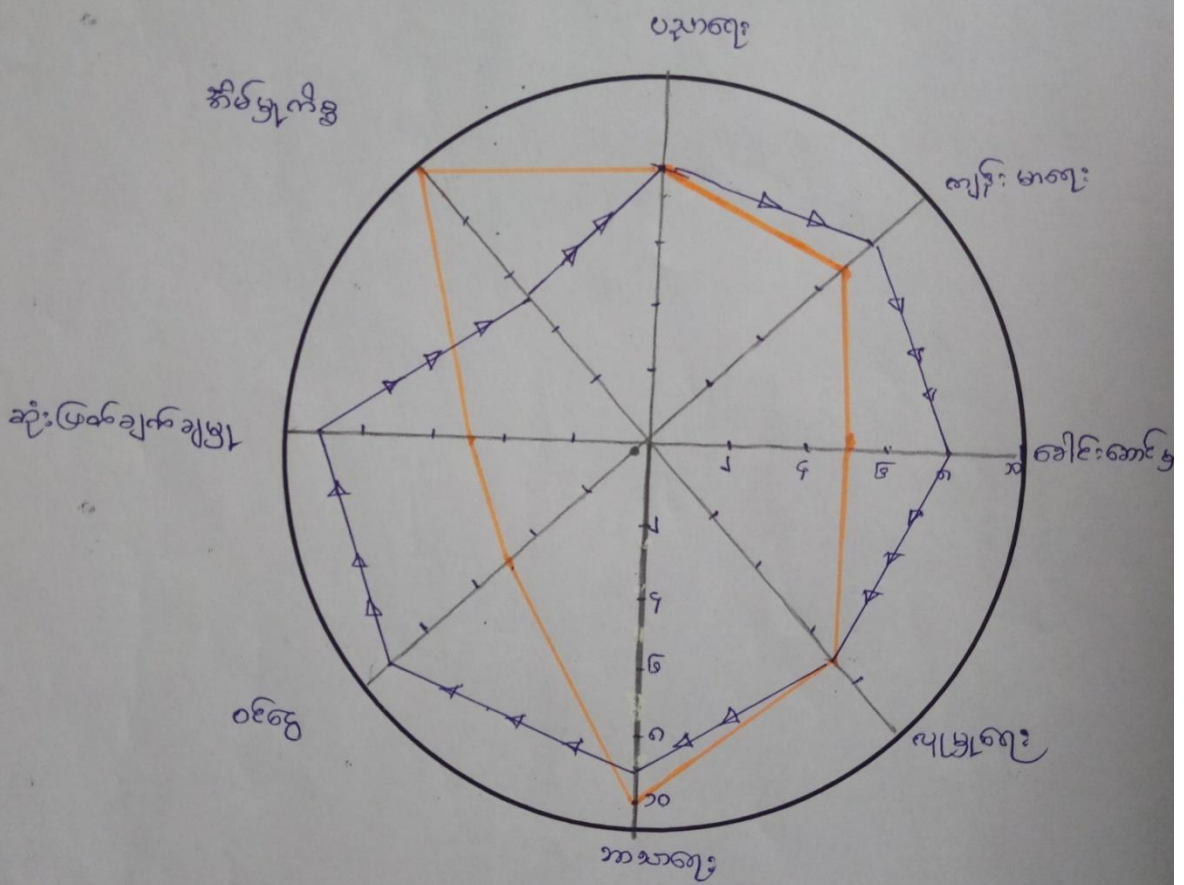 ပညာရေး
ကျန်းမာရေး
ခေါင်းဆောင်မှု
၂ ၄ ၆ ၈ ၁၀
လူမှုရေး
၂
၄
၆
၈
၁၀
ဘာသာရေး
ဝင်ငွေ
ဆုံးဖြတ်ချက်ချမှု
အိမ်မှုကိစ္စ